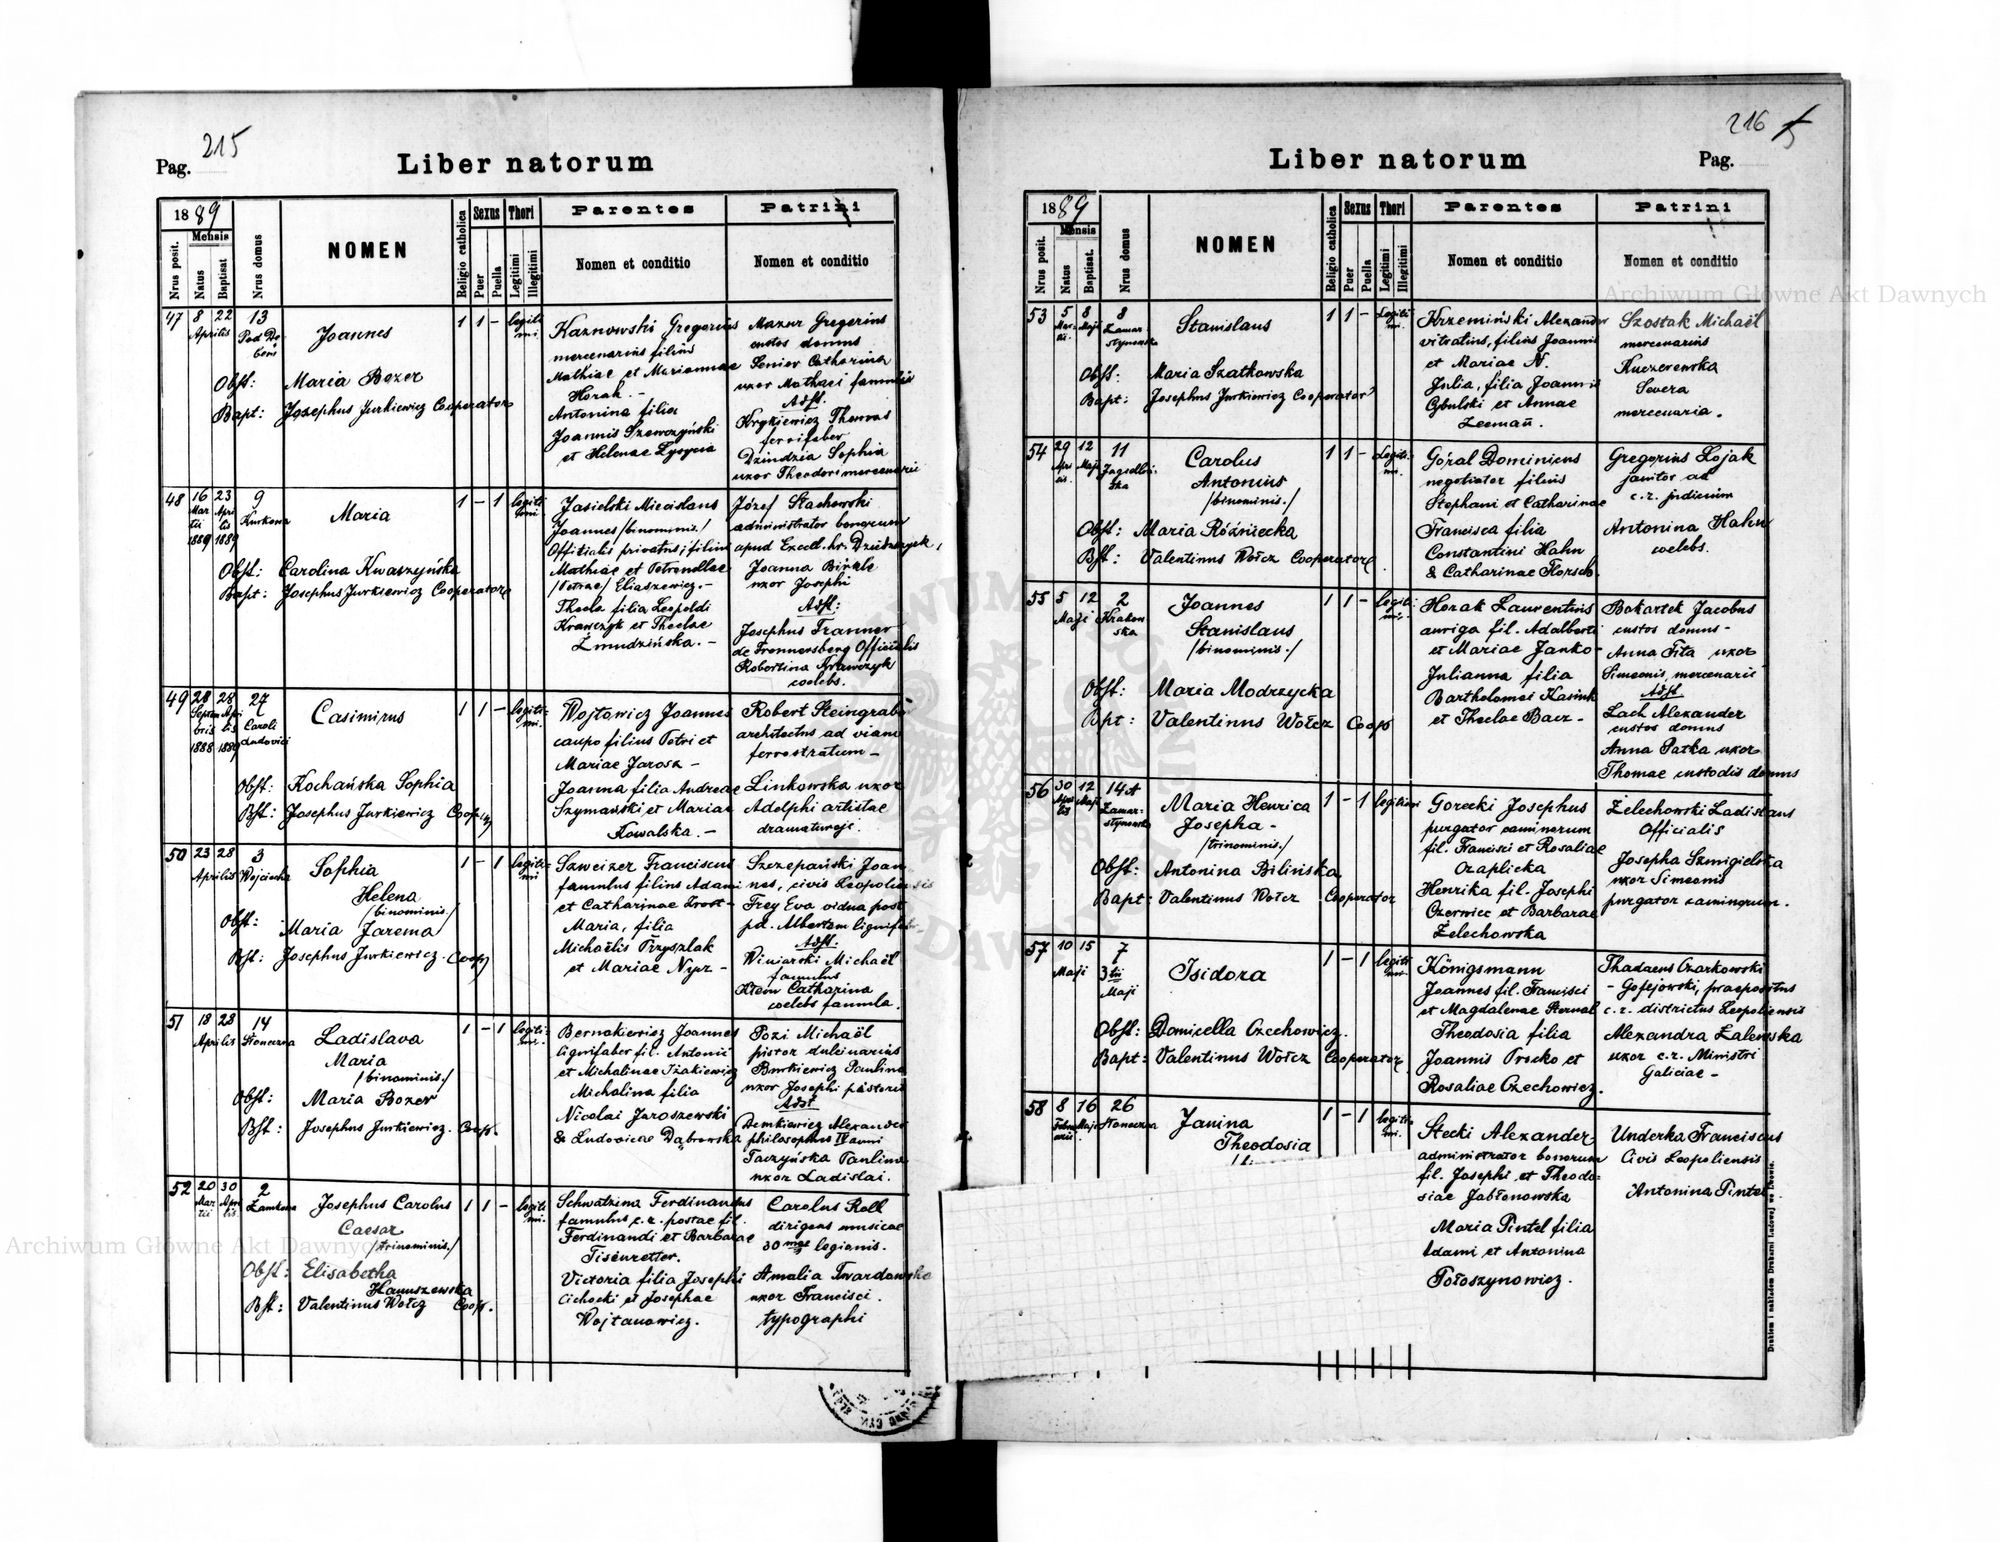 Pag. 215
Liber natorum
1889
Mensis
Nrus posit.
Natus
Baptisat
Nrus domus
NOMEN
Religio catholica
Sexus
Puer
Puella
Thori
Legitimi
Illegitimi
Parentes
Nomen et conditio
Patrini
Nomen et conditio
47 8 22 13
Aprilis Pod Dę-
bem
Joannes
1 1 – legiti-
mi.
Obst: Maria Bozer
Bapt: Josephus Jurkiewicz Cooperator
Kaznowski Gregorius
mercenarius filius
Mathiae et Mariannae
Horak. –
Antonina filia
Joannis Szewczyński
et Helenae Łysycia
Mazur Gregorius
custos domus
Senior Catharina
uxor Mathaei famulis
Adst.
Krykiewicz Thomas
ferrifaber
Dzindzia Sophia
uxor Theodori mercenarii
48 16 23 9
Mar- Apri-
tii lis
1889 1889
Kurkowa
Maria
1 – 1 legiti-
mi.
Obst: Carolina Kwaszyńska
Bapt: Josephus Jurkiewicz Cooperator
Jasielski Miecislaus
Joannes /binominis./
Officialis privatus, filius
Mathiae et Petronellae
/Petrae/ Eliaszewicz. –
Thecla filia Leopoldi
Krawczyk et Theclae
Żmudzińska. –
Józef Stachowski
administrator bonorum
apud Excell. hr.
Joanna Birkle
uxor Josephi
Adst:
Josephus Tranner
de Fronnersberg Officialis
Robertina Krawczyk
coelebs.
49 28 28 27
Septem- Apri-
bris lis
1888 1889
Caroli
Ludovici
Casimirus
1 1 – legiti-
mi.
Obst: Kochańska Sophia
Bst: Josephus Jurkiewicz Coop.
Wojtowicz Joannes
caupo filius Petri et
Mariae Jarosz –
Joanna filia Andreae
Szymański et Mariae
Kowalska. –
Robert Steingrab
architectus ad viam
ferrostratam –
Linkowska uxor
Adolphi artistae
dramaturgi.
50 23 28 3
Aprilis Wojciecha
Sophia
Helena
/binominis./
1 – 1 legiti-
mi
Obst: Maria Jarema
Bst: Josephus Jurkiewicz. Coop
Szweizer Franciscus
famulus filius Adami
et Catharinae Drost –
Maria, filia
Michaëlis Przyszlak
et Mariae Nycz –
Szczepański Joan-
nes, civis Leopoliensis
Frey Eva vidua post
pd. Albertum lignifab.
Adst.
Winiarski Michaël
famulus
Klem Catharina
coelebs famula.
51 18 28 14
Aprilis Słoneczna
Ladislava
Maria
/binominis./
1 – 1 legiti-
mi.
Obst: Maria Bozer
Bst: Josephus Jurkiewicz. Coop.
Bernakiewicz Joannes
lignifaber fil. Antonii
et Michalinae Iżakiewicz
Michalina filia
Nicolai Jaroszewski
& Ludovicae Dąbrowska
Pozi Michaël
pistor dulciarius
Burkiewicz Paulina
uxor Josephi pistoris
Adst
Demkiewicz Alexander
philosophus IV anni
Taczyńska Paulina
uxor Ladislai.
52 20 30 2
Mar- Apri-
tii lis
Zamkowa
Josephus Carolus
Caesar
/trinominis./
1 1 – legiti-
mi.
Obst: Elisabetha
Hanuszewska
Bst: Valentinus Wołcz Coop.
Schwatzima Ferdinandus
famulus c.r. postae fil.
Ferdinandi et Barbarae
Tisenretter.
Victoria filia Josephi
Cichocki et Josephae
Wojtanowicz.
Carolus Roll
dirigens musicae
30 mae legionis.
Amalia Twardowska
uxor Francisci
typographi
216
Liber natorum
Pag.
1889
Mensis
Nrus posit.
Natus
Baptisat.
Nrus domus
NOMEN
Religio catholica
Sexus
Puer
Puella
Thori
Legitimi
Illegitimi
Parentes
Nomen et conditio
Patrini
Nomen et conditio
53 5 8 8
Maji Zamar-
stynowska
Stanislaus
1 1 – Legiti-
mi.
Obst: Maria Szatkowska
Bapt: Josephus Jurkiewicz Cooperator
Krzemiński Alexander
vitralius, filius Joannis
et Mariae N.
Julia, filia Joannis
Cybulski et Annae
Leemań.
Szostak Michaël
mercenarius
Kuczerewska
Severa
mercenaria.
54 29 12 11
Apri- Maji
lis
Jagielloń-
ska
Carolus
Antonius
/binominis./
1 1 – Legiti-
mi.
Obst: Maria Różniecka
Bst: Valentinus Wołcz Cooperator
Góral Dominicus
negotiator filius
Stephani et Catharinae
Francisca filia
Constantini Hahn
& Catharinae Horsch.
Gregorius Łojak
janitor ad
c.r. judicium
Antonina Hahn
coelebs.
55 5 12 2
Maji Krakow-
ska
Joannes
Stanislaus
/binominis./
1 1 – legiti-
mi.
Obst: Maria Modrzycka
Bapt: Valentinus Wołcz Coop
Horak Laurentius
auriga fil. Adalberti
et Mariae Janko –
Julianna filia
Bartholomei Kasiuk
et Theclae Bacz –
Bokartek Jacobus
custos domus –
Anna Fita uxor
Simeonis, mercenarii
Adst
Lach Alexander
custos domus
Anna Patka uxor
Thomae custodis domus
56 30 12 14 A
Apri- Maji
lis
Zamar-
stynowska
Maria Henrica
Josepha –
/trinominis./
1 – 1 legitimi
Obst: Antonina Bilińska
Bapt: Valentinus Wołcz Cooperator
Gorecki Josephus
purgator caminorum
fil. Francisci et Rosaliae
Czaplicka
Henrika fil. Josephi
Czerwiec et Barbarae
Żelechowska
Żelechowski Ladislaus
Officialis
Josepha Szmigielska
uxor Simeonis
purgator caminorum.
57 10 15 7
Maji 3 tii
Maji
Isidora
1 – 1 legiti-
mi.
Obst: Domicella Czechowicz.
Bapt: Valentinus Wołcz Cooperator
Königsmann
Joannes fil. Francisci
et Magdalenae Sternal
Theodosia filia
Joannis Procko et
Rosaliae Czechowicz.
Thadaeus Czarkowski
– Gołejowski, praepositus
c.r. districtus Leopoliensis
Alexandra Zaleska
uxor c.r. Ministri
Galiciae –
58 8 16 26
Febru- Maji
arii
Słoneczna
Janina
Theodosia
1 – 1 legiti-
mi.
Stecki Alexander
administrator bonorum
fil. Josephi et Theodo-
siae Jabłonowska
Maria Pintel filia
Adami et Antonina
Tołoszynowicz.
Underka Franciscus
Civis Leopoliensis
Antonina Pintel
Drukiem i nakładem Drukarni Ludowej we Lwowie.
Archiwum Główne Akt Dawnych
Archiwum Główne Akt Dawnych